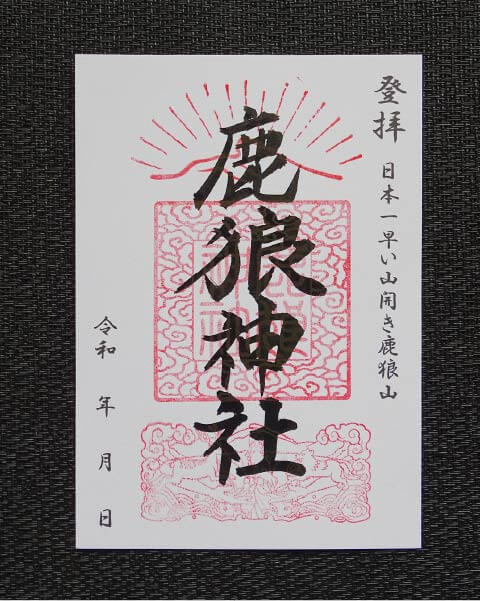 登拝 日本一早い山開き鹿狼山
鹿狼神社
令和 年 月 日